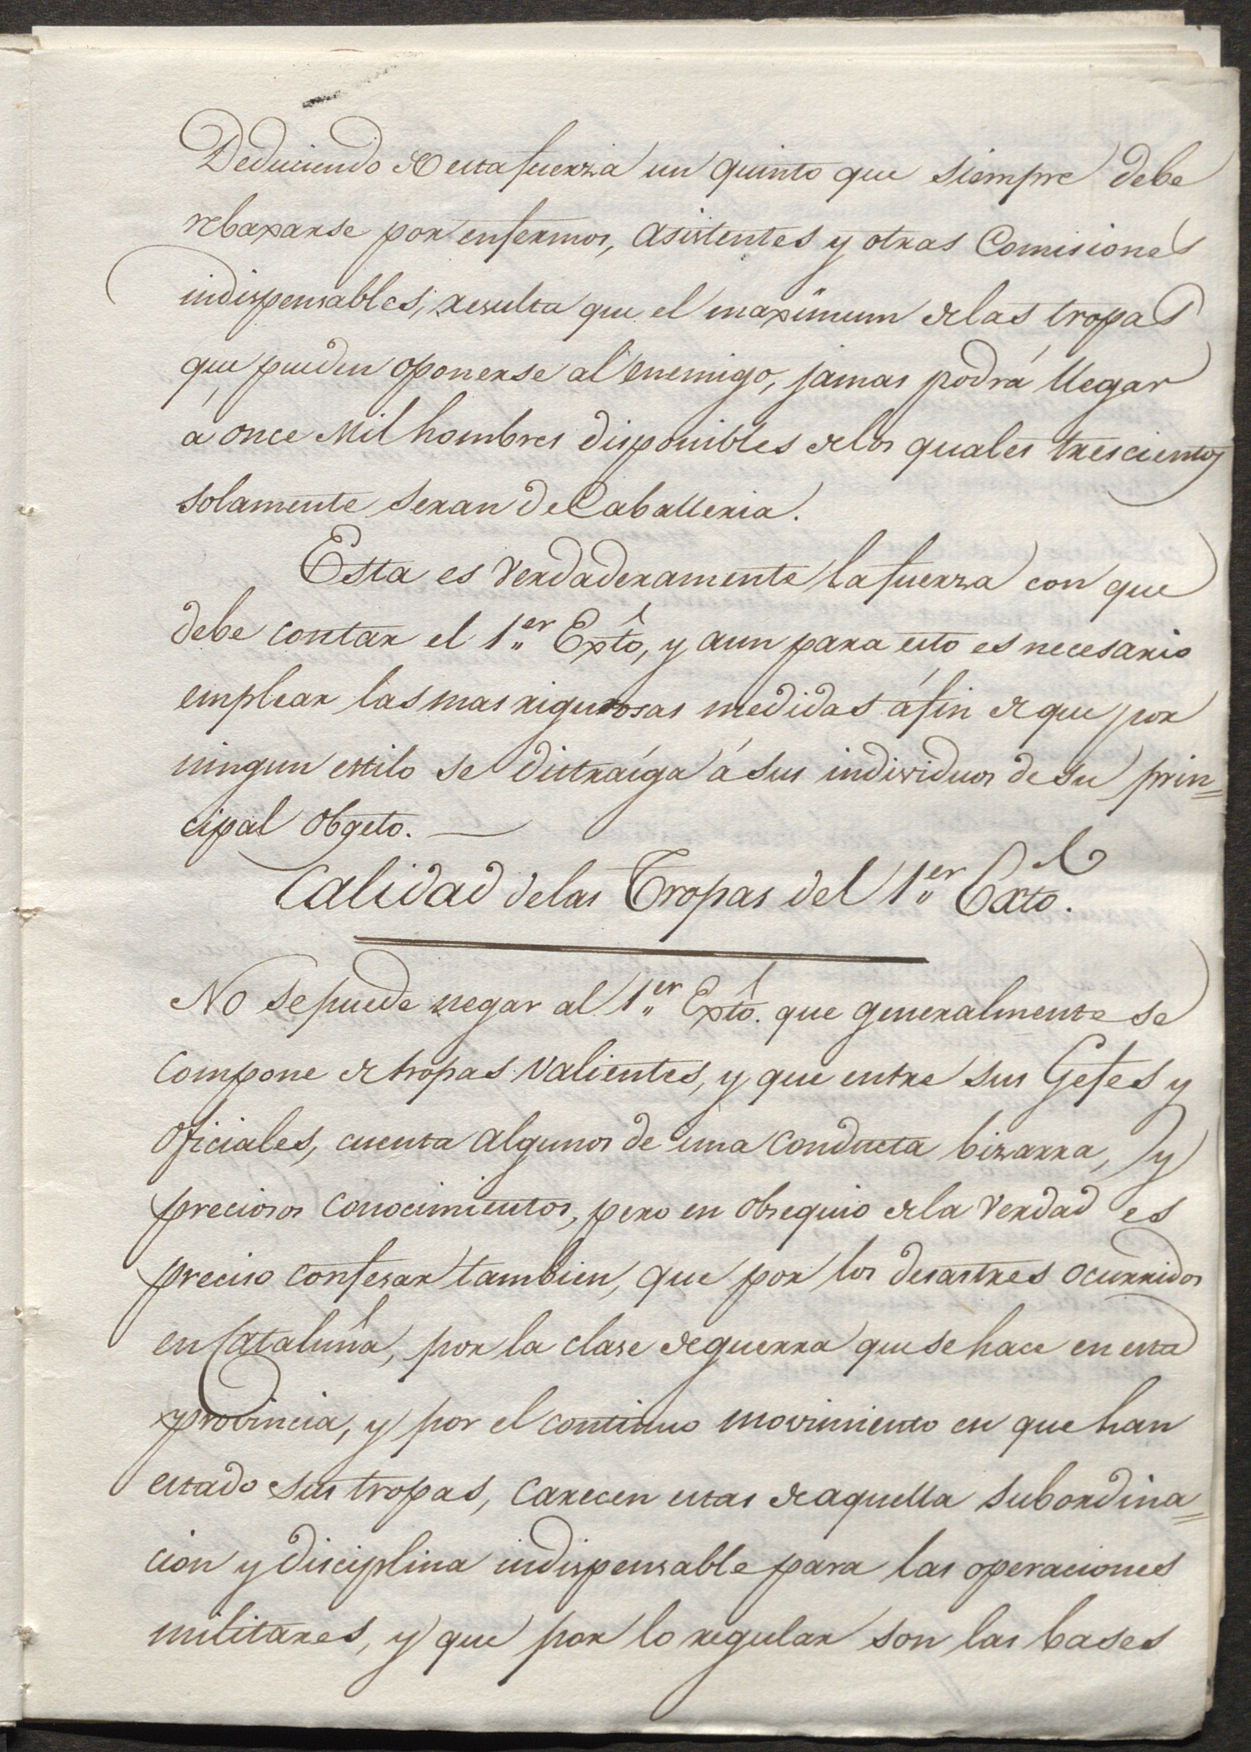 Deduciendo de esta fuerza un quinto que siempre debe
rebaxarse por enfermos, asistentes y otras Comisiones
indispensables, resulta que el maximum de las tropas
que pueden oponerse al enemigo, jamas podrá llegar
a once Mil hombres disponibles de los quales trescientos
solamente seran de Caballeria.
Esta es verdaderamente la fuerza con que
debe contar el 1.er Exto, y aun para esto es necesario
emplear las mas rigurosas medidas á fin de que por
ningun estilo se distraíga á sus individuos de su prin=
cipal Obgeto.
Calidad de las Tropas del 1.er Exto.
No se puede negar al 1.er Exto. que generalmente se
compone de tropas valientes, y que entre sus Gefes y
Oficiales, cuenta algunos de una conducta bizarra, y
preciosos conocimientos, pero en obsequio de la verdad es
preciso confesar tambien, que por los desastres ocurridos
en Cataluña, por la clase de guerra que se hace en esta
provincia, y por el continuo movimiento en que han
estado sus tropas, carecen estas de aquella subordina=
cion y disciplina indispensable para las operaciones
militares, y que por lo regular son las bases